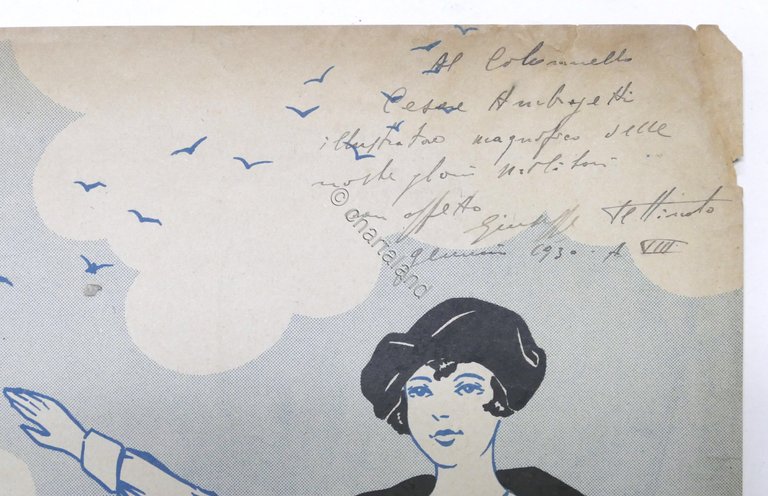 Al Colonnello
Cesare Ambrogetti
illustratore magnifico delle
nostre glorie militari
con affetto
Giuseppe
gennaio 1930 - A VIII
© charraland